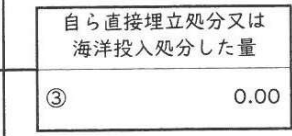 自ら直接埋立処分又は
海洋投入処分した量
③ 0.00